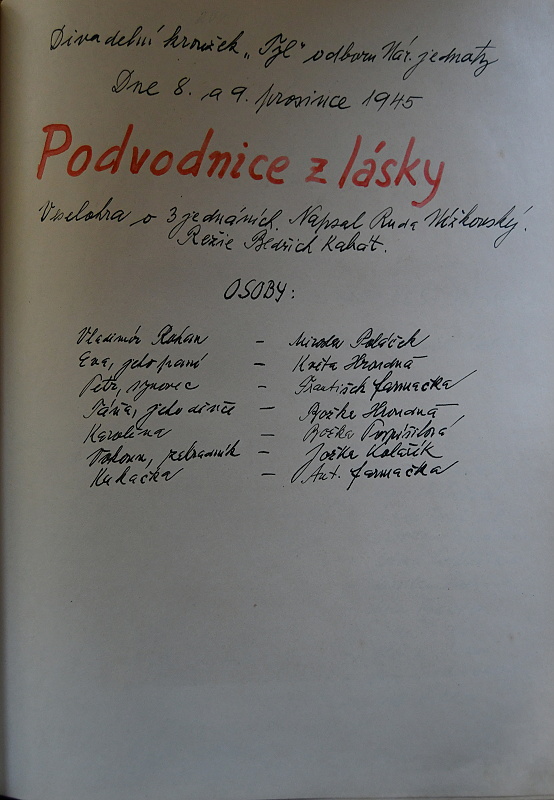 Divadelní kroužek „Tyl" odboru Nár. jednoty
Dne 8. a 9. prosince 1945
Podvodnice z lásky
Veselohra o 3 jednáních. Napsal Ruda
Režie Bedřich Kabát.
OSOBY:
Vladimír Rohan - Miroslav Poláček
Eva, jeho paní - Květa Hrondná
Petr, synovec - František Farmačka
Táňa, jeho děvče - Božka Hrondná
Karolina - Božka Pospíšilová
Vokoun, zahradník - Jožka Kolařík
Kukačka - Ant. Farmačka